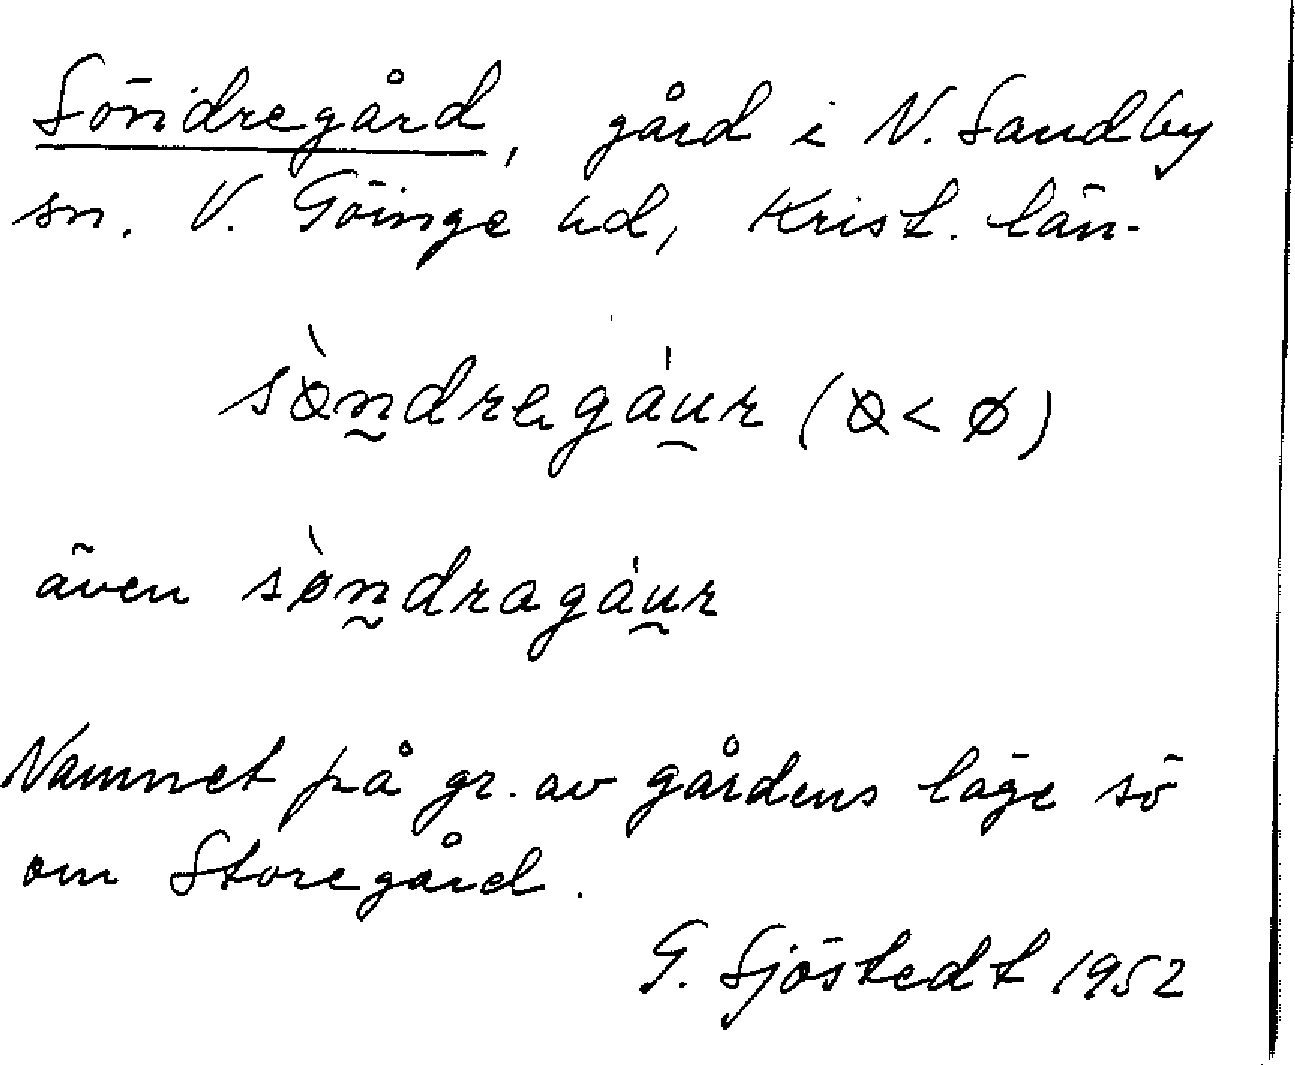 Söndregård, gård i N. Sandby
sn. V. Göinge hd, Krist. län.
sø̀ndregáur (ꝍ < ø)
även sø̀ndragáur
Namnet på gr. av gårdens läge sö
om Storegård.
G. Sjöstedt 1952